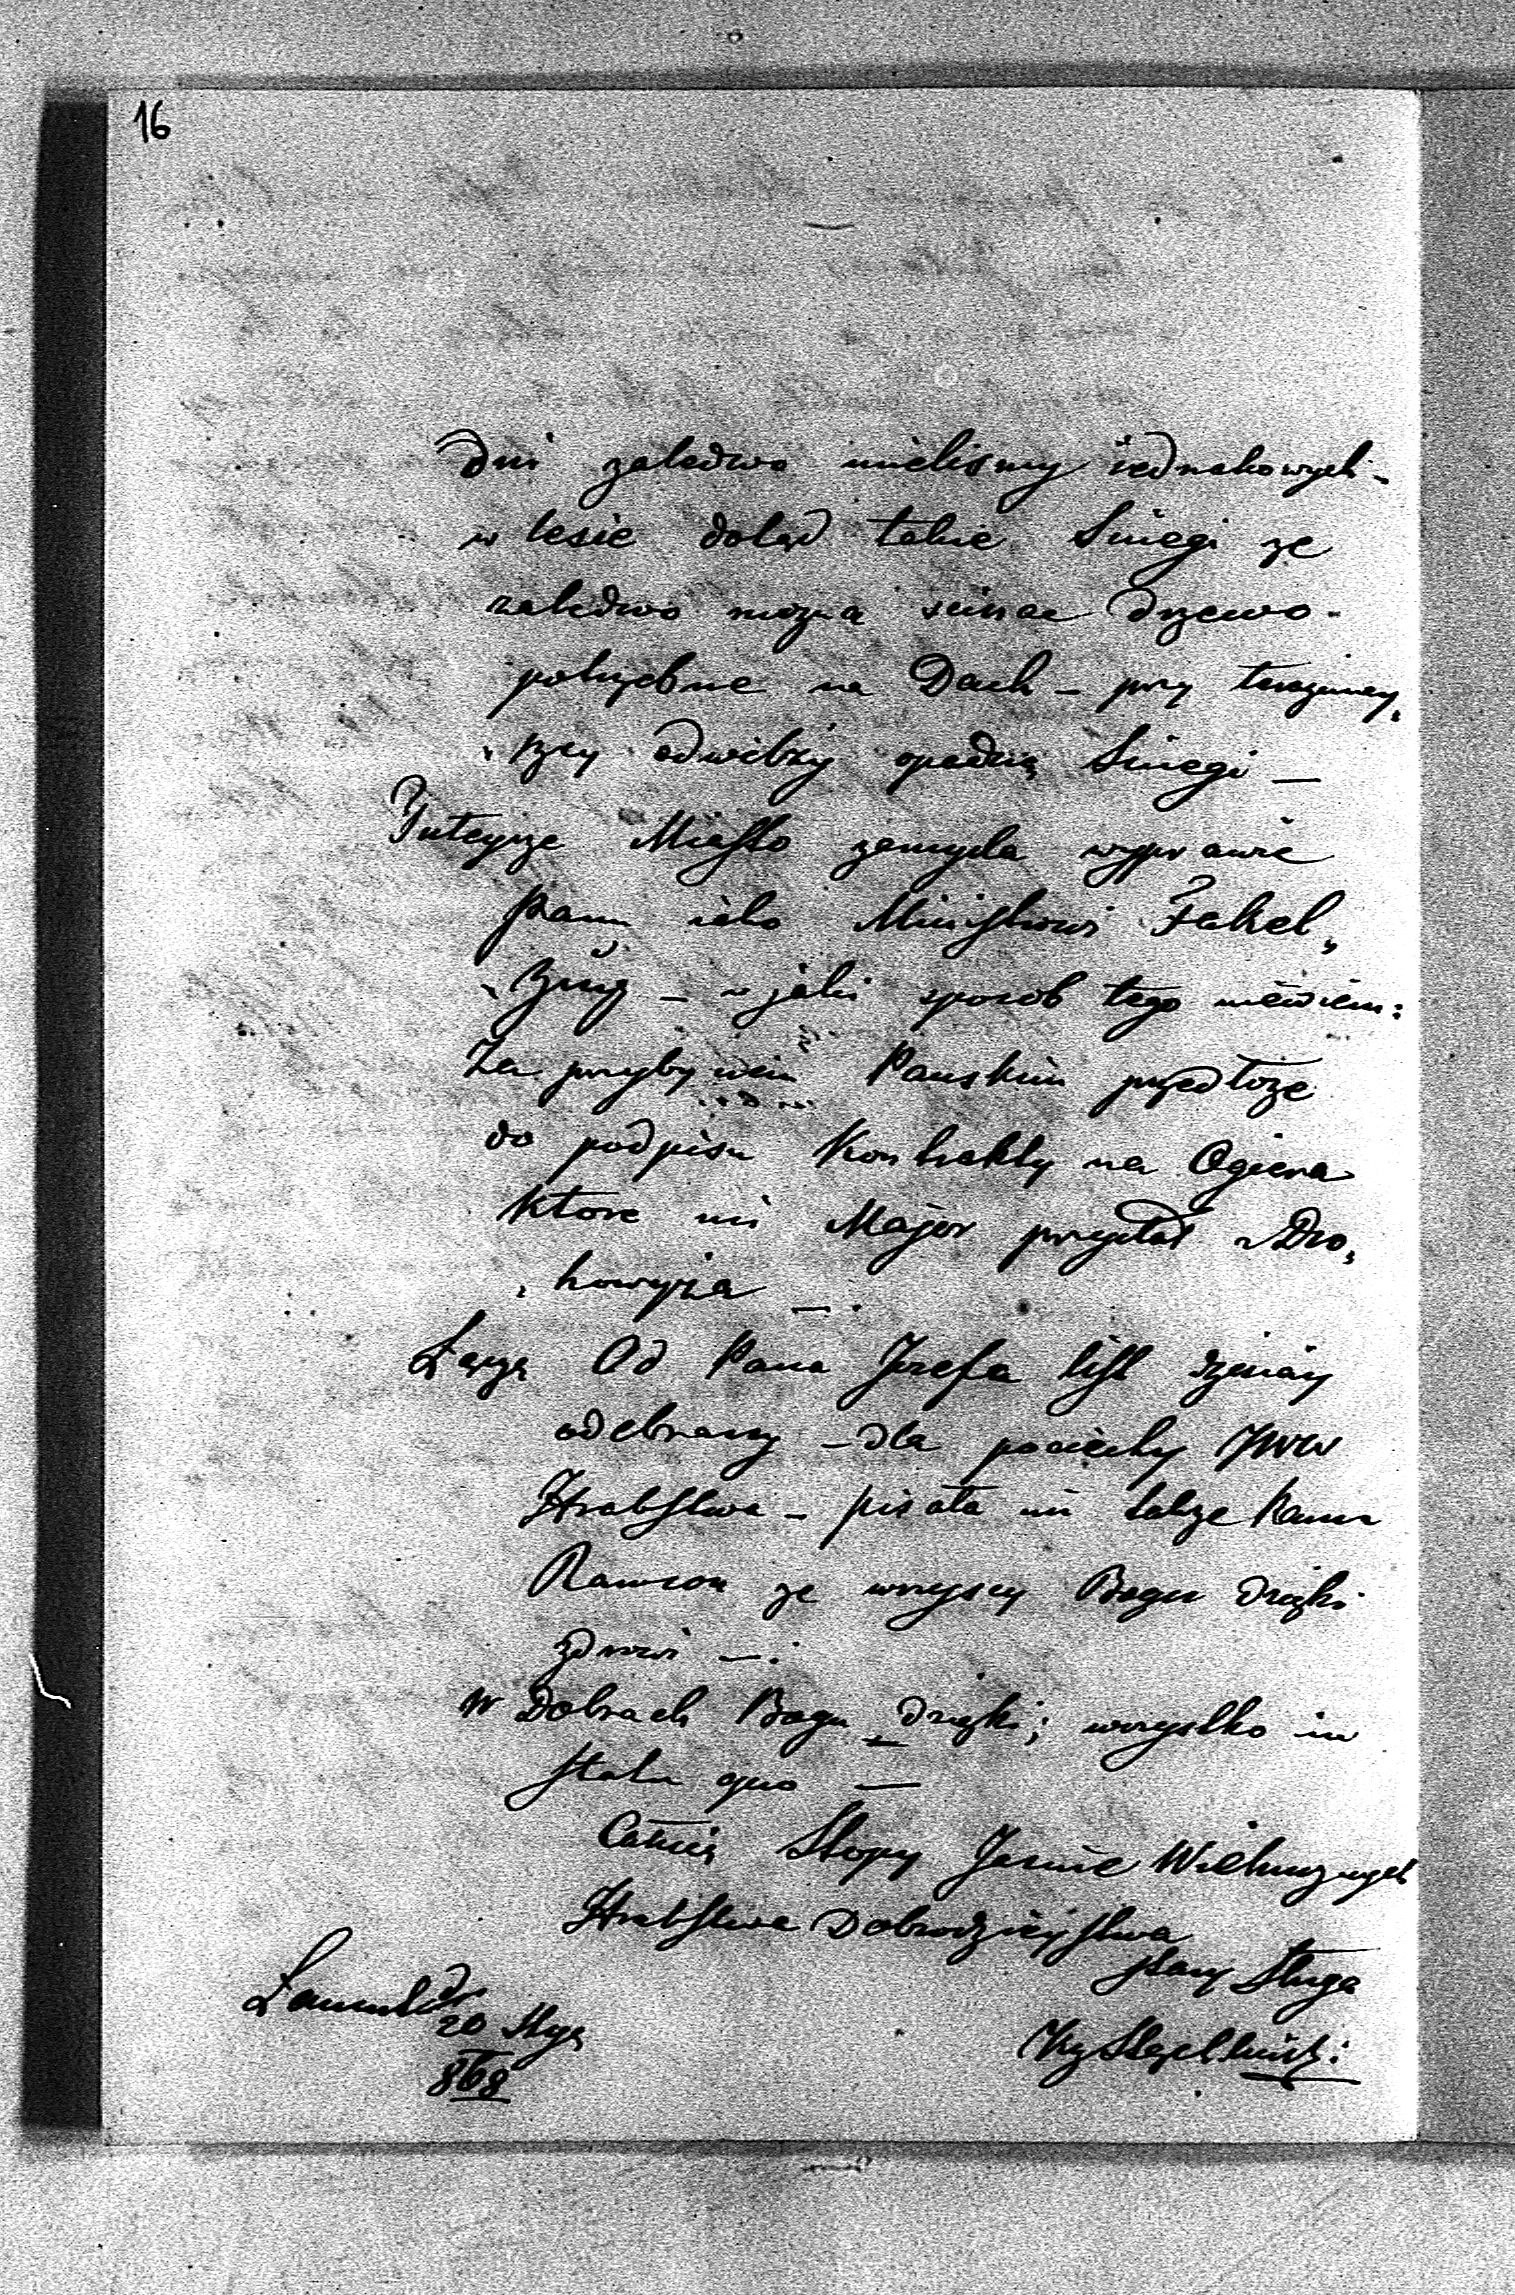 16
dni zaledwo mielismy iednakowych -
w lesie dotąd takie Sniegi ze
zaledwo mozna scinac drzewo -
potrzebne na Dach - przy terazniey„
„szey odwilzy opadną Sniegi —
Tuteysze Miasto zamysla wyprawic
Panu iako Ministrowi Fakel„
„Zug - w jaki sposob tego niewiem:
Za przybyciem Panskim przedłoze
do podpisu Kontrakty na Ogiera
ktore mi Major przysłał z Dro„
„howyza —.
Łączę Od Pana Jozefa list dzisiay
odebrany - dla pociechy JWW
Hrabstwa - pisała mi takze Panna
ze wszyscy Bogu dzięki
zdrowi —.
W Dobrach Bogu dzięki; wszystko in
statu quo —
Całuię Stopy Jasnie Wielmoznych
Hrabstwa Dobrodzieystwa
stary Sługa
Łancut dn
20 Stycz
868